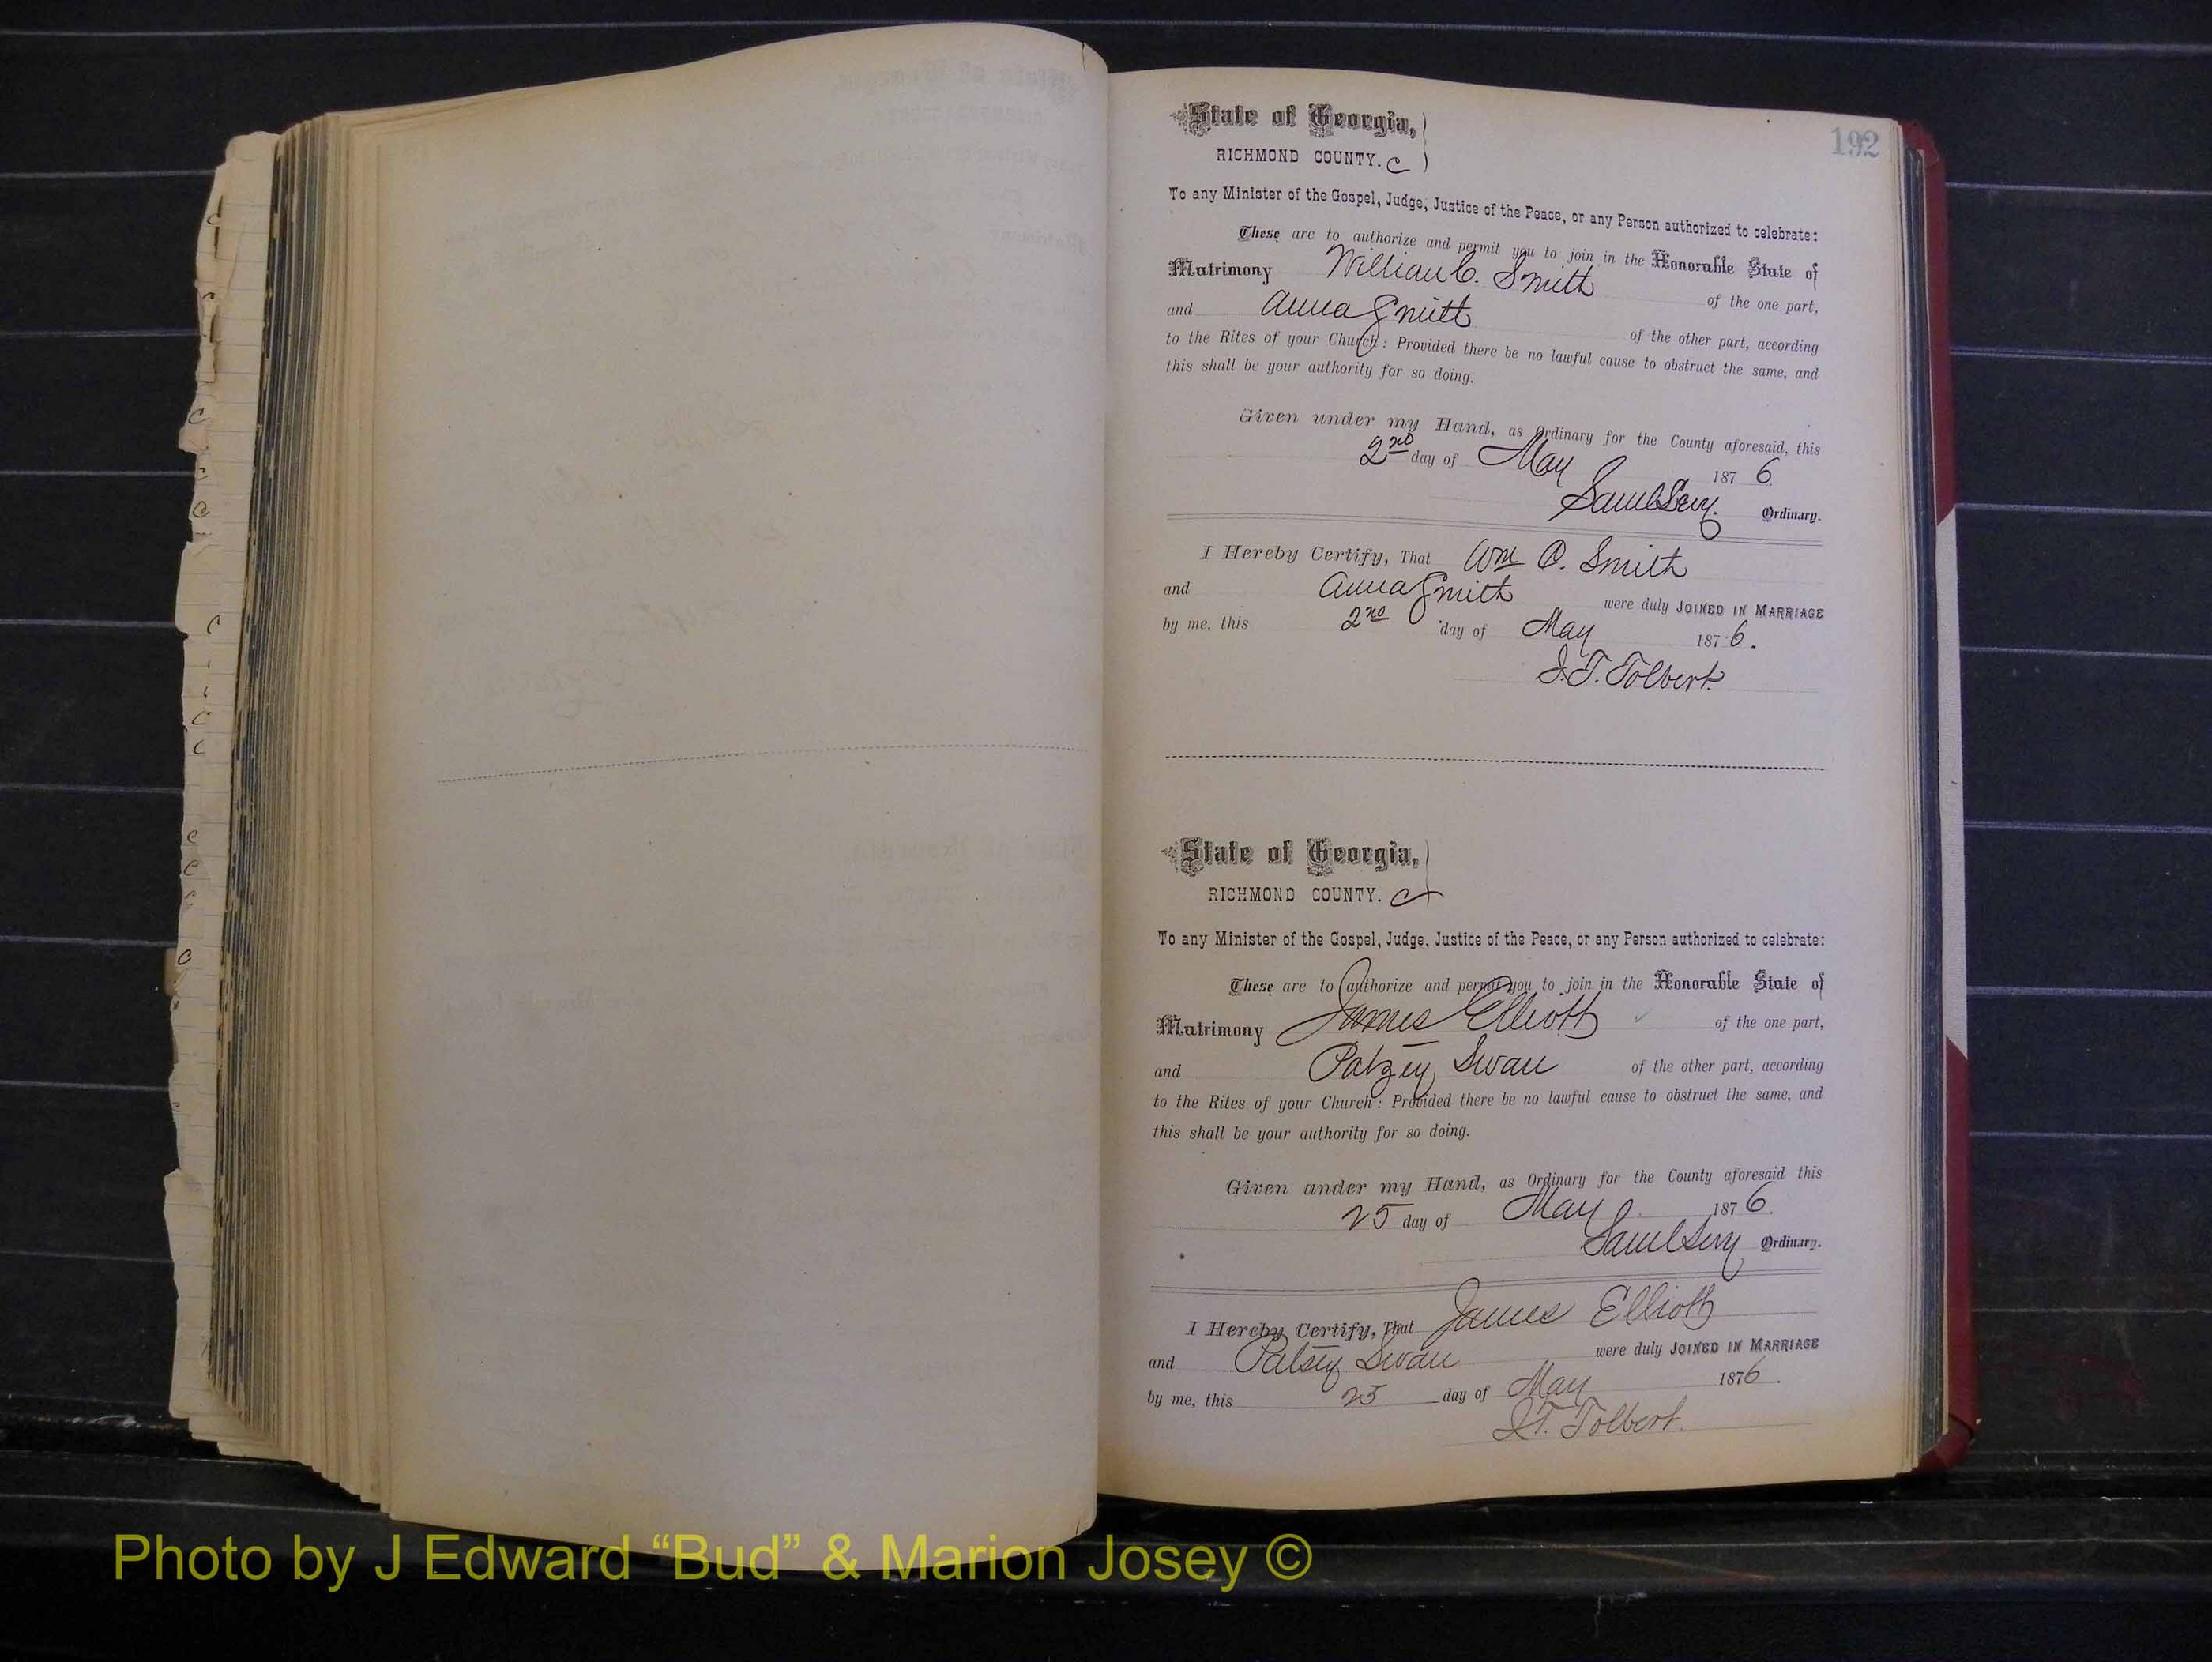 192
State of Georgia,
RICHMOND COUNTY. C
To any Minister of the Gospel, Judge, Justice of the Peace, or any Person authorized to celebrate:
These are to authorize and permit you to join in the Honorable State of
Matrimony William C. Smith of the one part,
and Anna Smith of the other part, according
to the Rites of your Church: Provided there be no lawful cause to obstruct the same, and
this shall be your authority for so doing.
Given under my Hand, as Ordinary for the County aforesaid, this
2nd day of May 1876
Saml Levy. Ordinary.
I Hereby Certify, That Wm C. Smith
and Anna Smith were duly JOINED IN MARRIAGE
by me, this 2nd day of May 1876.
J. T. Tolbert.
State of Georgia,
RICHMOND COUNTY. C
To any Minister of the Gospel, Judge, Justice of the Peace, or any Person authorized to celebrate:
These are to authorize and permit you to join in the Honorable State of
Matrimony James Elliott of the one part,
and Patzey Swan of the other part, according
to the Rites of your Church: Provided there be no lawful cause to obstruct the same, and
this shall be your authority for so doing.
Given under my Hand, as Ordinary for the County aforesaid this
25 day of May 1876.
Saml Levy Ordinary.
I Hereby Certify, That James Elliott
and Patsey Swan were duly JOINED IN MARRIAGE
by me, this 25 day of May 1876.
J. T. Tolbert.
Photo by J Edward “Bud” & Marion Josey ©